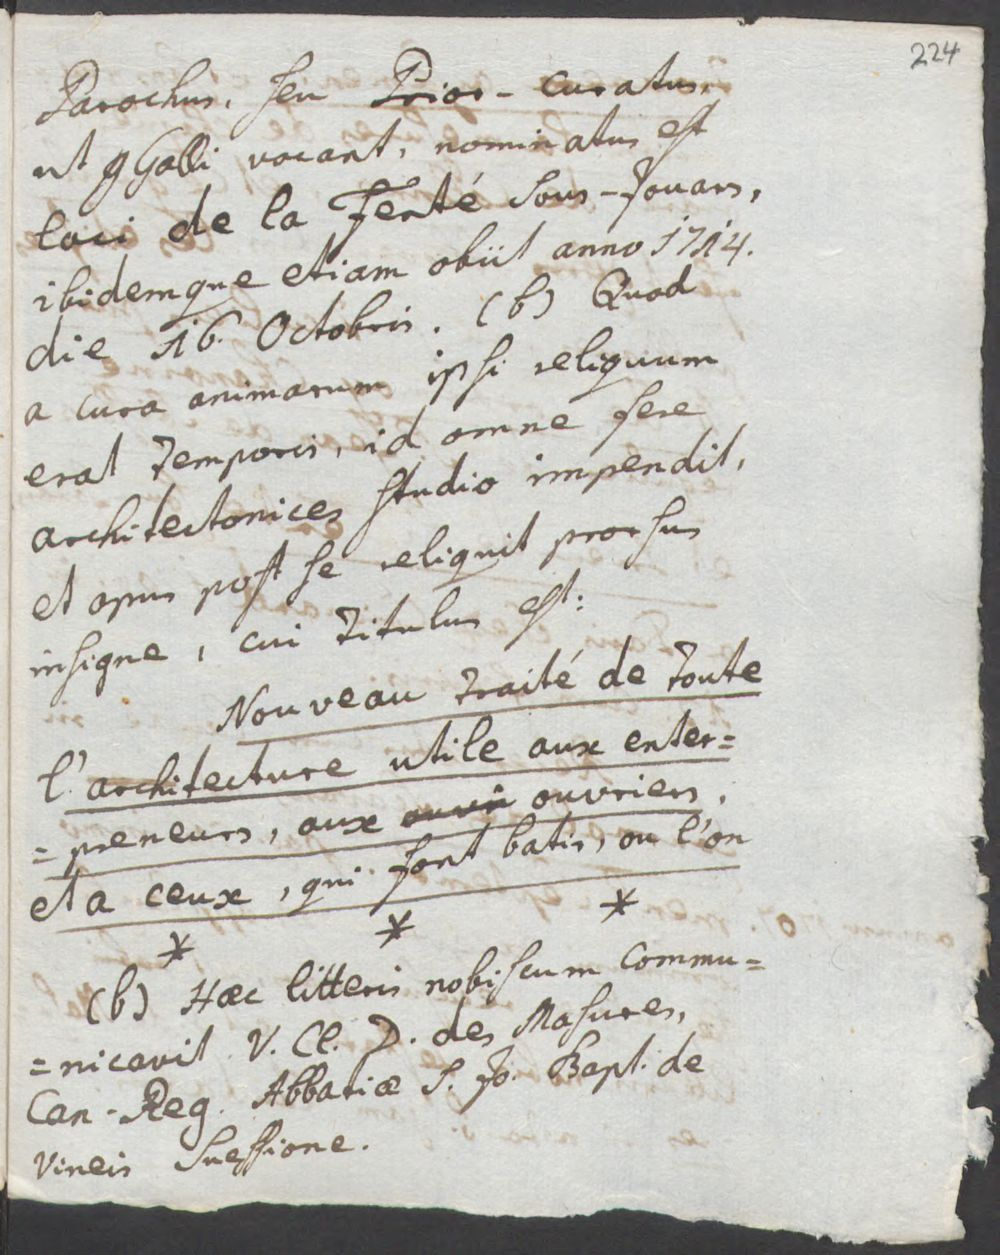 224
Parochus, seu Prior-curatus,
ut Galli vocant, nominatus est
loci de la Ferté sous-Jouars,
ibidemque etiam obiit anno 1714.
die 16. Octobris. (b) Quod
a cura animarum ipsi reliquum
erat temporis, id omne fere
architectonices studio impendit,
et opus post se reliquit prorsus
insigne, cui titulus est:
Nouveau traité de toute
l'architecture utile aux enter=
=preneurs, aux ouvriers,
et a ceux, qui font batir, ou l'on
* * *
(b) Hæc litteris nobiscum commu=
=nicavit V. Cl. D. des Masures,
Can. Reg. Abbatiæ S. Jo. Bapt. de
vineis Suessione.